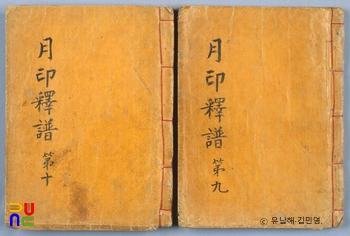 月印釋譜
第十
月印釋譜
第九
© 유남해.김민영